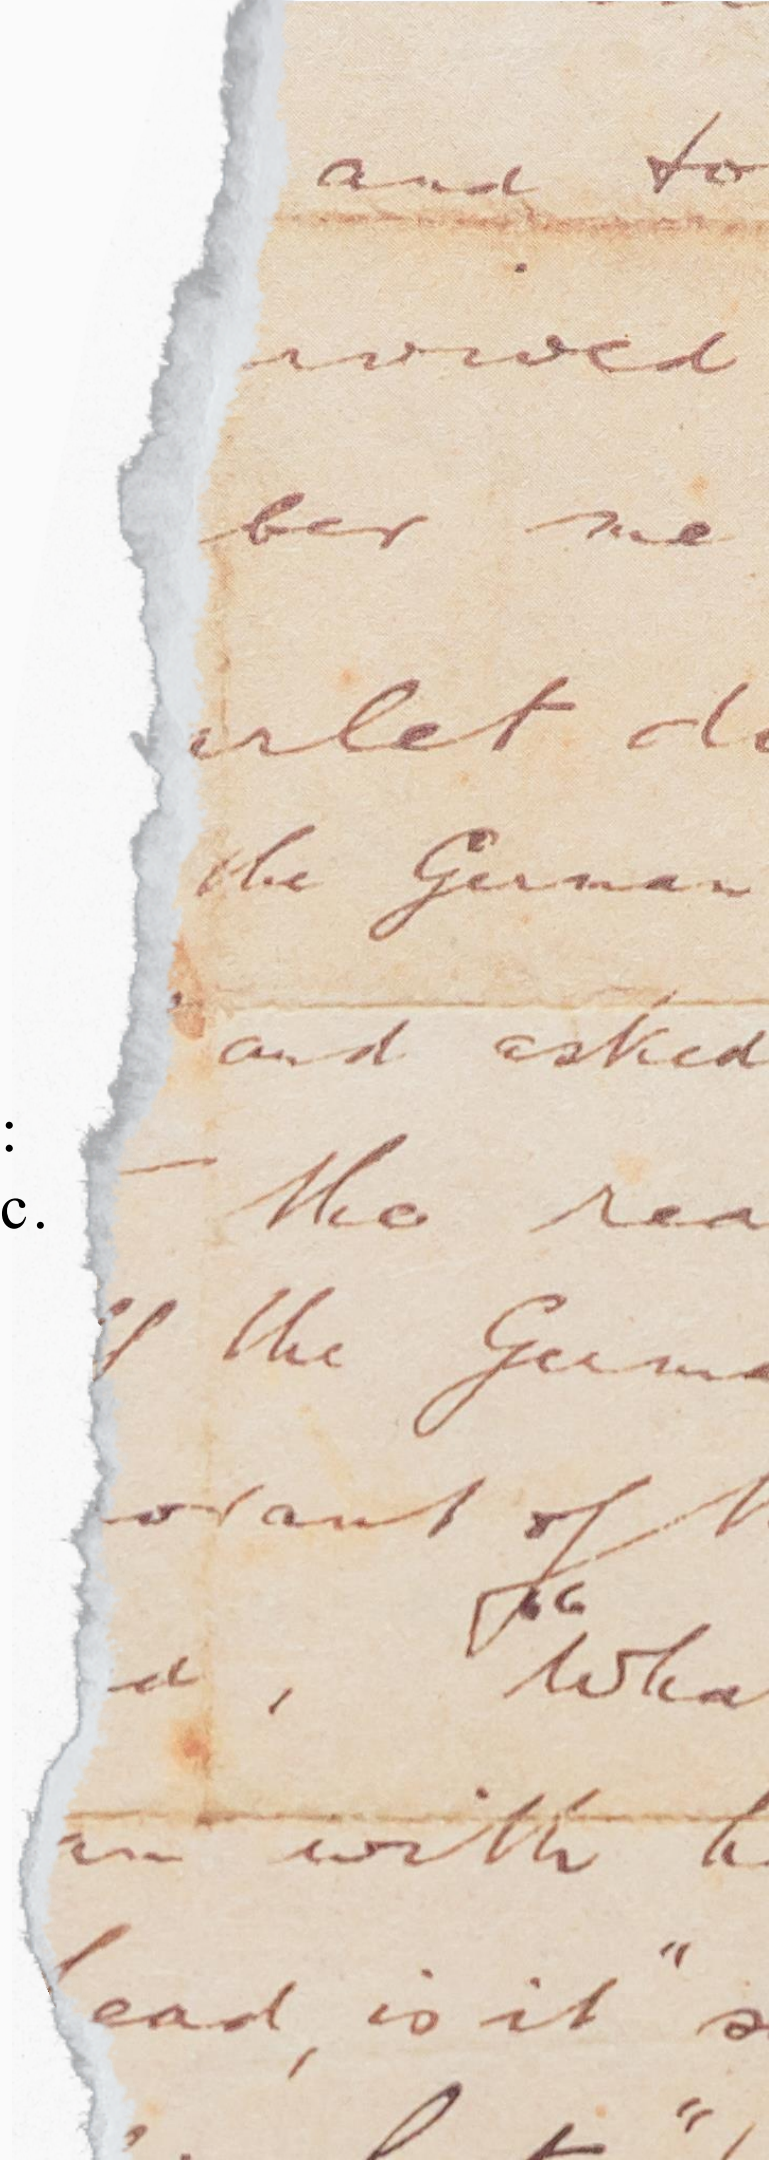 and to
vowed
ber me
rlet d
the German
and asked
:
— the rea
c.
of the Germa
orant of
d, "Wha
an with h
ead, is it" s